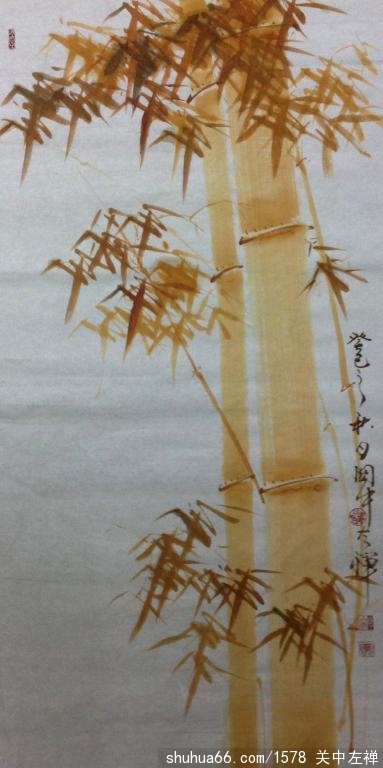 癸巳之秋日関中左禅
shuhua66.com/1578 关中左禅